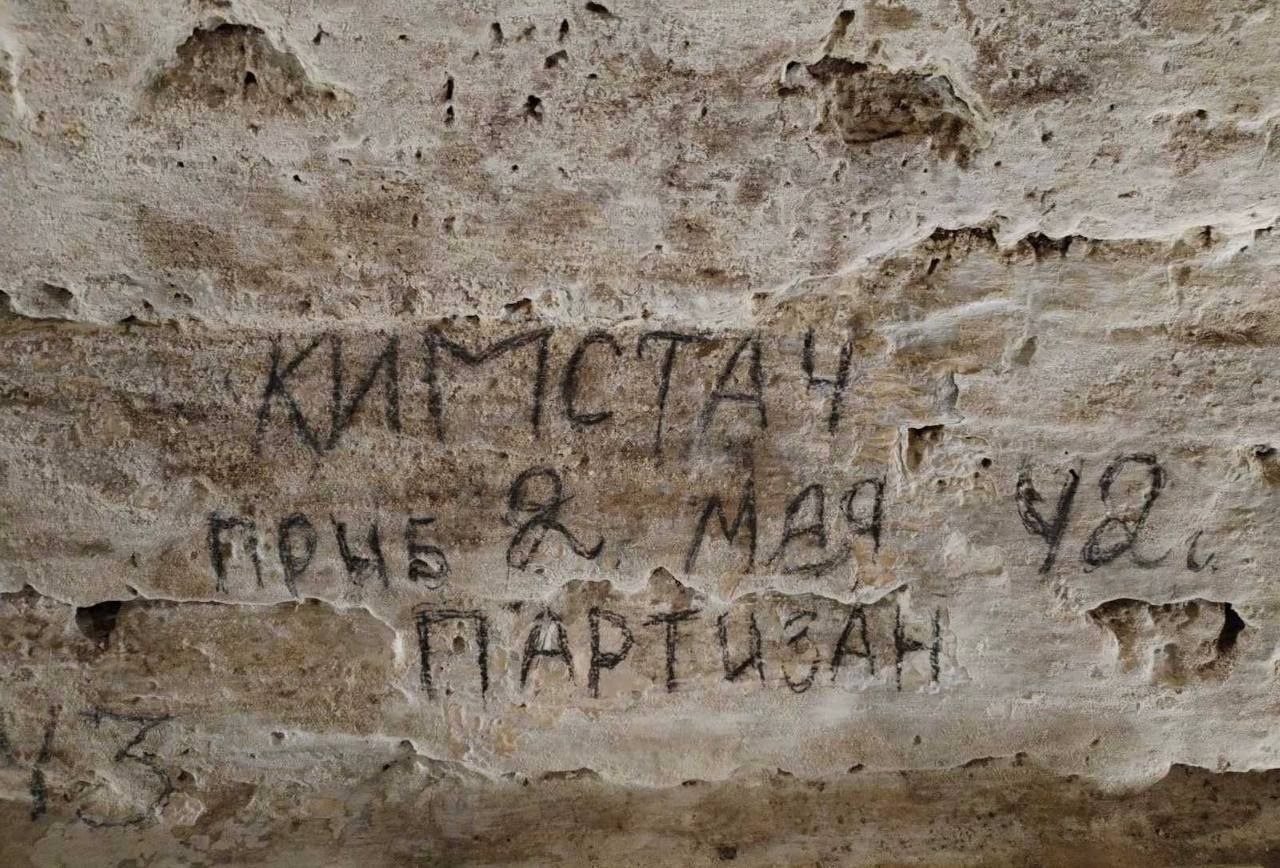 КИМСТАЧ
ПРЫБ 2 МАЯ 42 г
ПАРТИЗАН
43